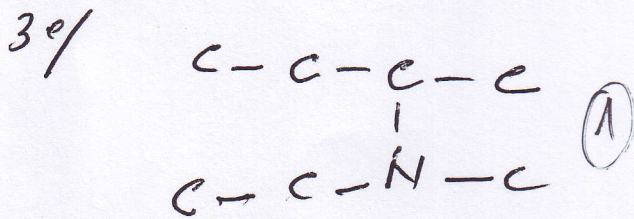 3e/
C-C-C-C
|
C-C-N-C
1